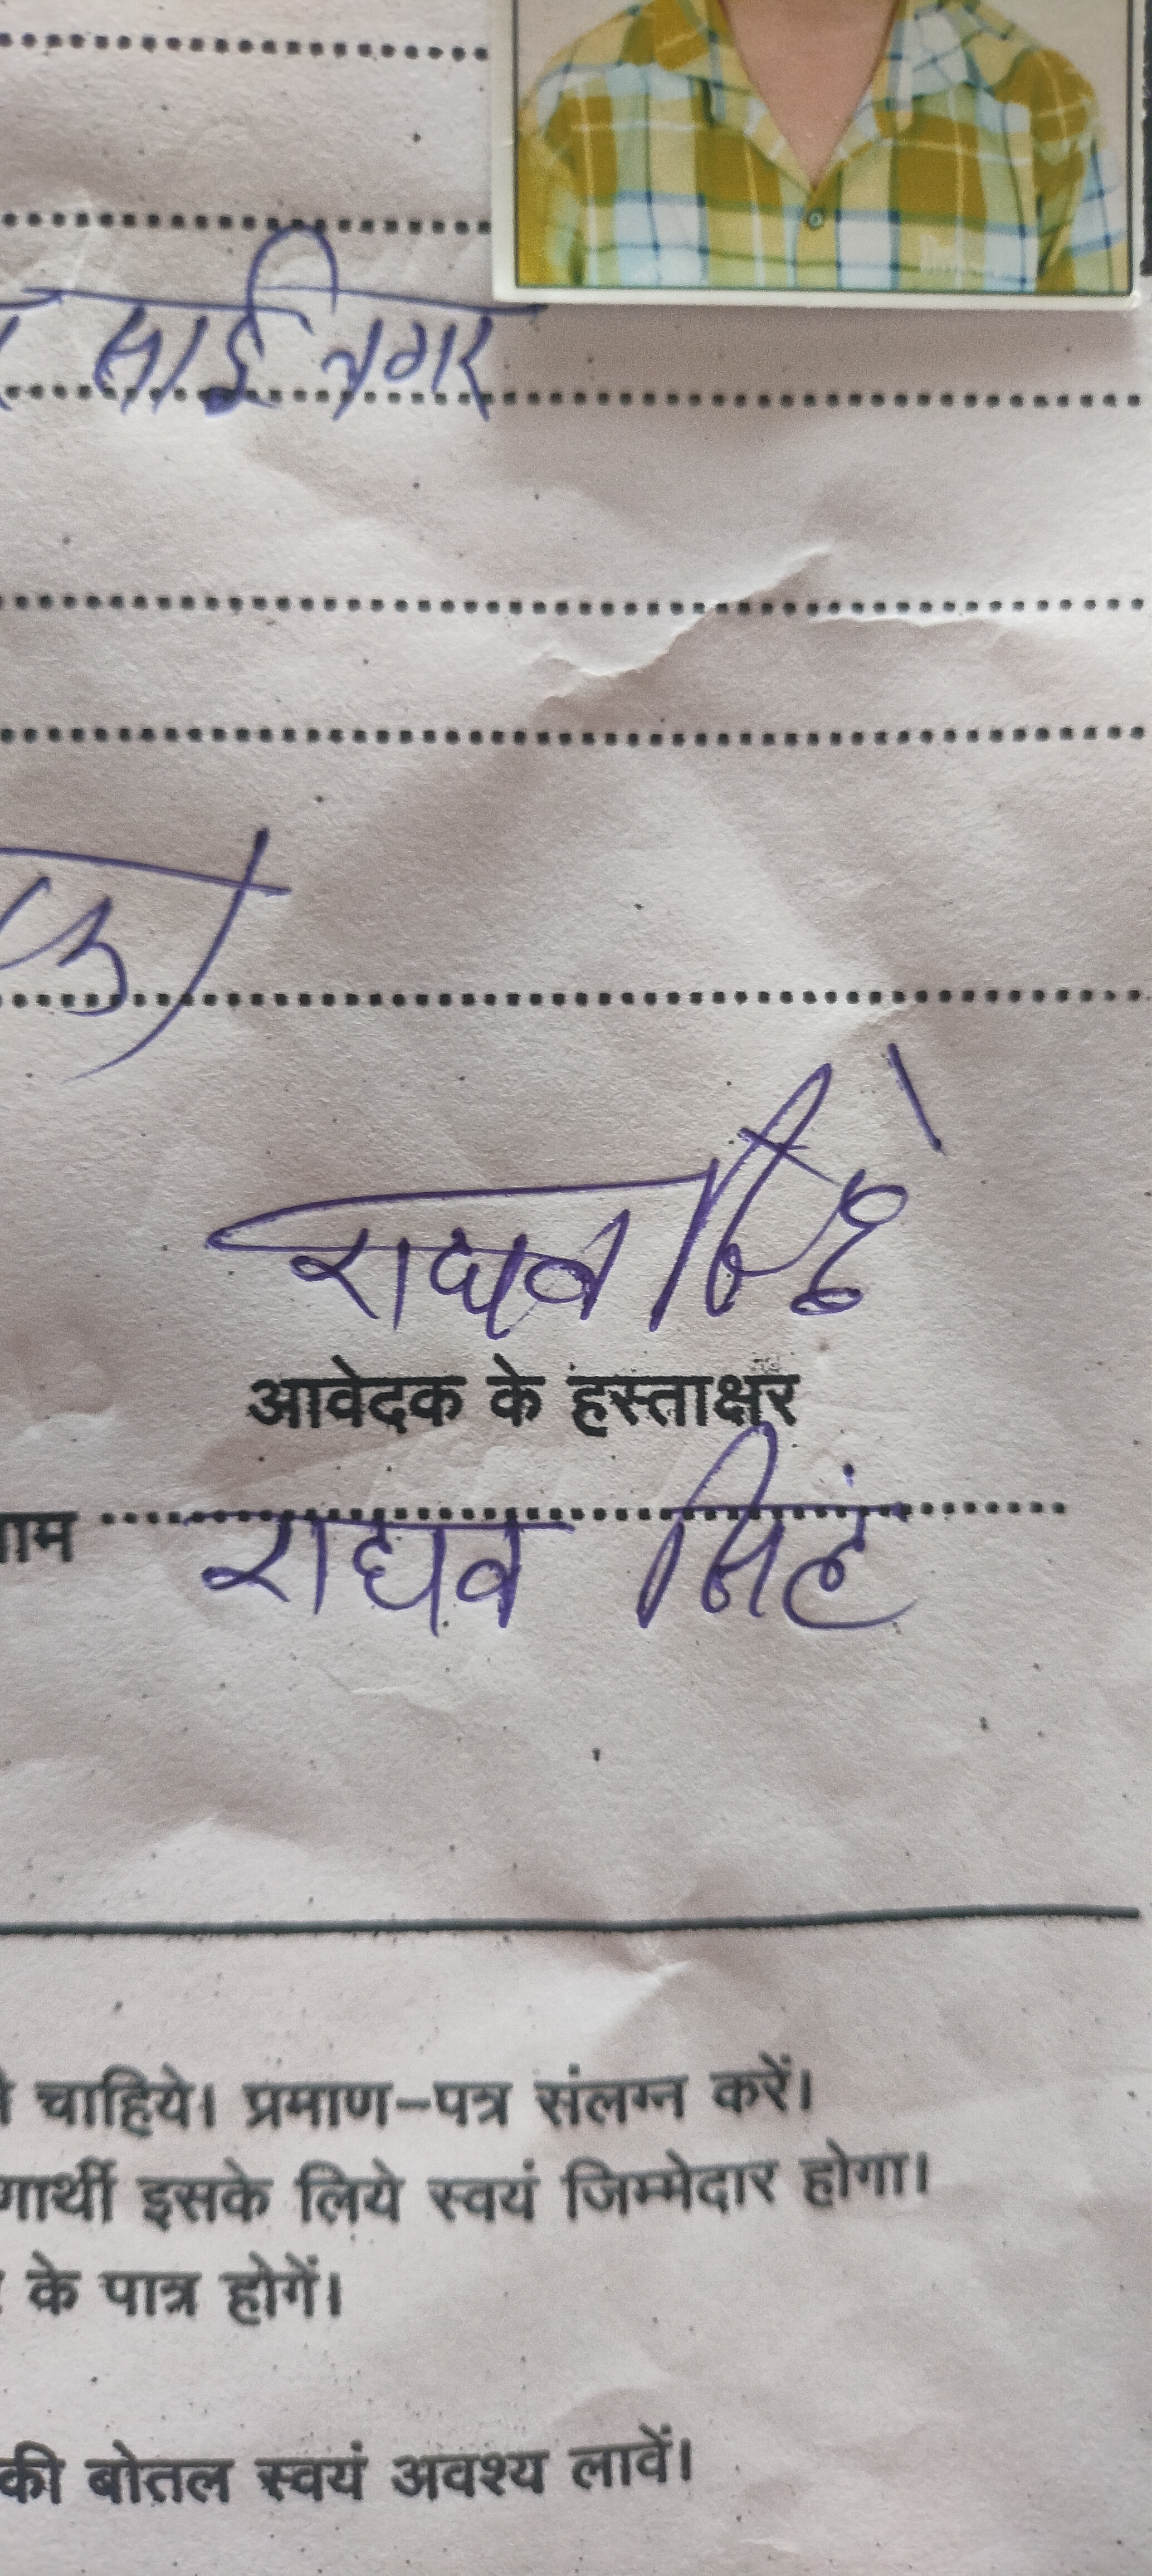 साई नगर
राघव सिंह
आवेदक के हस्ताक्षर
नाम राघव सिंह
चाहिये। प्रमाण-पत्र संलग्न करें।
इसके लिये स्वयं जिम्मेदार होगा।
के पात्र होगें।
की बोतल स्वयं अवश्य लावें।